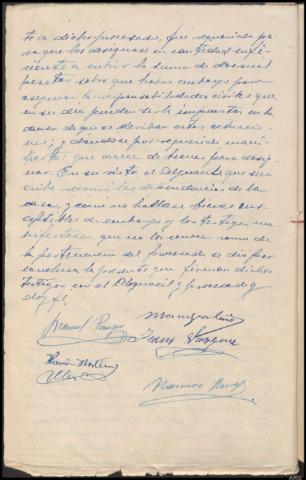 to a dicho procesado, fué requerido pa-
ra que los designase en cantidad sufi-
ciente a cubrir la suma de dos mil
pesetas sobre que haber embargo para
asegurar la responsabilidades civiles que
en su día pueden serle impuestas en la
causa de que se derivan estas actuacio-
nes; y dándose por requerido mani-
fiesta: que carece de bienes para desig-
nar. En su vista el Alguacil que sus-
cribe reconoció las dependencias de la
casa, y como no hallase bienes sus-
ceptibles de embargo y los testigos ma-
nifestaron que no los conoce como de
la pertenencia del procesado, se dió por
conclusa la presente que firman dichos
testigos con el Alguacil y procesado y
doy fé.
Manuel
Ramón
Ramon